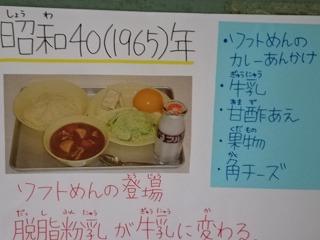 しょう わ
昭和40(1965)年
・ソフトめんの
カレーあんかけ
ぎゅうにゅう
・牛乳
あま ず
・甘酢あえ
くだもの
・果物
かく
・角チーズ
とうじょう
ソフトめんの登場
だっ し ふんにゅう ぎゅうにゅう か
脱脂粉乳が牛乳に変わる。